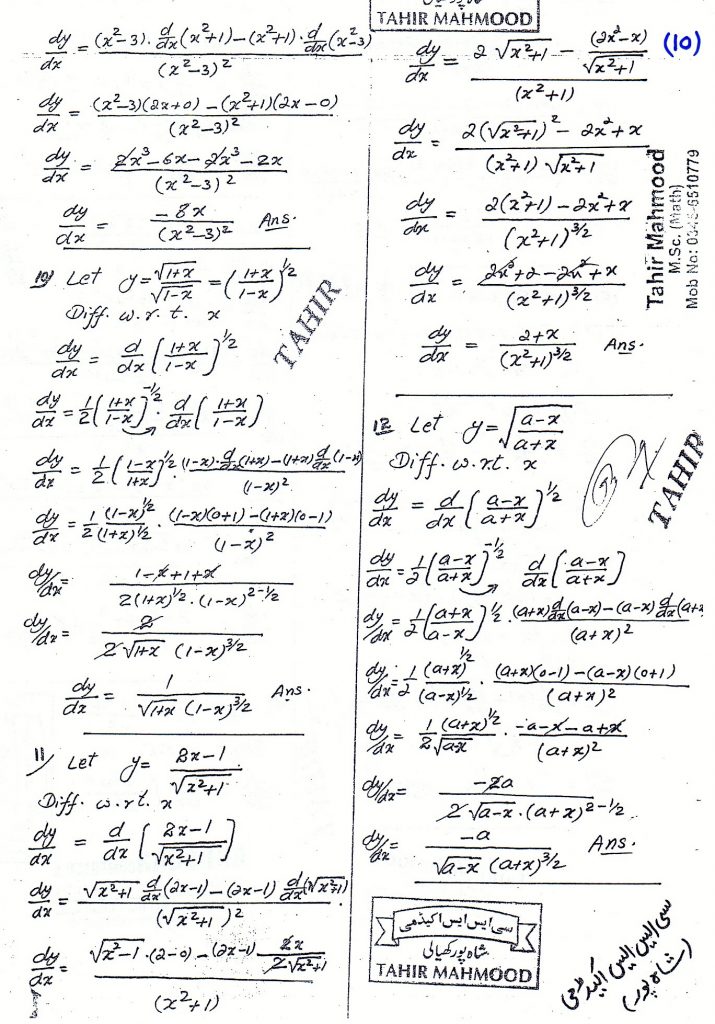 dy/dx = ((x²-3). d/dx(x²+1)-(x²+1). d/dx(x²-3))/(x²-3)²
dy/dx = ((x²-3)(2x+0)-(x²+1)(2x-0))/(x²-3)²
dy/dx = (2x³-6x-2x³-2x)/(x²-3)²
dy/dx = -8x/(x²-3)² Ans.
10/ Let y = √(1+x)/√(1-x) = ((1+x)/(1-x))^1/2
Diff. w.r.t. x
dy/dx = d/dx ((1+x)/(1-x))^1/2
dy/dx = 1/2 ((1+x)/(1-x))^-1/2 . d/dx ((1+x)/(1-x))
dy/dx = 1/2 ((1-x)/(1+x))^1/2 . ((1-x). d/dx(1+x)-(1+x) d/dx(1-x))/(1-x)²
dy/dx = 1/2 (1-x)^1/2/(1+x)^1/2 . ((1-x)(0+1)-(1+x)(0-1))/(1-x)²
dy/dx = (1-x+1+x)/(2(1+x)^1/2 . (1-x)^2-1/2)
dy/dx = 2/(2√(1+x) (1-x)^3/2)
dy/dx = 1/(√(1+x) (1-x)^3/2) Ans.
TAHIR
11/ Let y = (2x-1)/√(x²+1)
Diff. w.r.t. x
dy/dx = d/dx ((2x-1)/√(x²+1))
dy/dx = (√(x²+1) d/dx(2x-1)-(2x-1) d/dx(√(x²+1)))/(√(x²+1))²
dy/dx = (√(x²-1) .(2-0)-(2x-1) 2x/(2√(x²+1)))/(x²+1)
TAHIR MAHMOOD
(10)
dy/dx = (2 √(x²+1) - (2x²-x)/√(x²+1))/(x²+1)
dy/dx = (2(√(x²+1))² - 2x²+x)/((x²+1) √(x²+1))
dy/dx = (2(x²+1)-2x²+x)/(x²+1)^3/2
dy/dx = (2x²+2-2x²+x)/(x²+1)^3/2
dy/dx = (2+x)/(x²+1)^3/2 Ans.
Tahir Mahmood
M.Sc. (Math)
Mob No: 0346-6510779
12 Let y = √((a-x)/(a+x))
Diff. w.r.t. x
dy/dx = d/dx ((a-x)/(a+x))^1/2
dy/dx = 1/2 ((a-x)/(a+x))^-1/2 d/dx ((a-x)/(a+x))
dy/dx = 1/2 ((a+x)/(a-x))^1/2 . ((a+x) d/dx(a-x)-(a-x) d/dx(a+x)/(a+x)²
dy/dx = 1/2 (a+x)^1/2/(a-x)^1/2 . ((a+x)(0-1)-(a-x)(0+1))/(a+x)²
dy/dx = 1/2 (a+x)^1/2/√(a-x) . (-a-x-a+x)/(a+x)²
dy/dx = -2a/(2√(a-x) . (a+x)^2-1/2)
dy/dx = -a/(√(a-x) (a+x)^3/2) Ans.
TAHIR
سی ایس ایس اکیڈمی
شاہ پور کھیالی
TAHIR MAHMOOD
سی ایس ایس اکیڈمی
(شاہ پور)